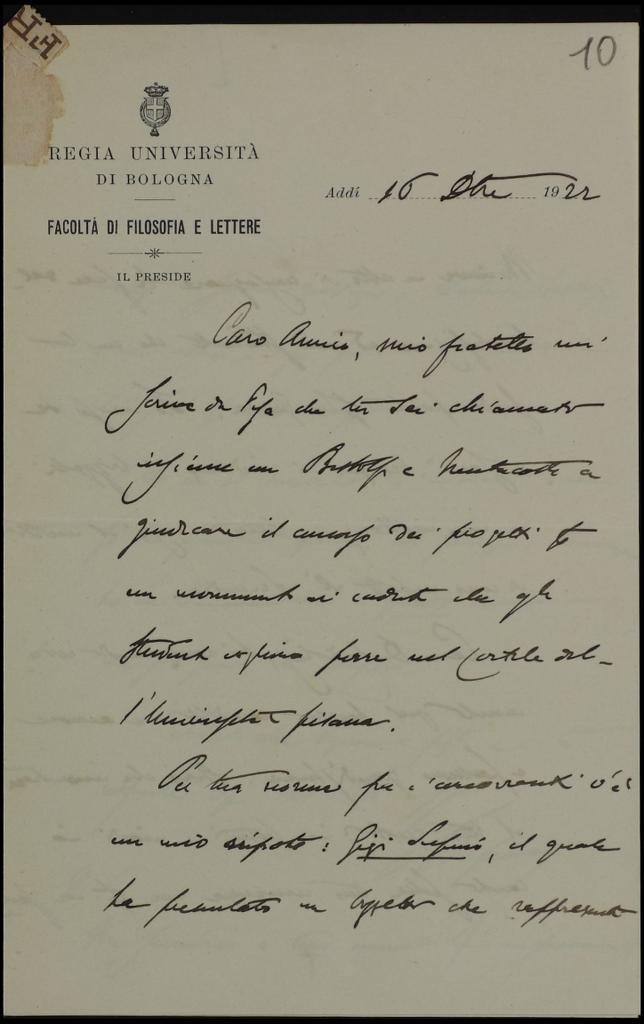 10
REGIA UNIVERSITÀ
DI BOLOGNA
Addì 16 Ottre 1922
FACOLTÀ DI FILOSOFIA E LETTERE
IL PRESIDE
Caro Amico, mio fratello mi
scrive da Pisa che tu sei chiamato
insieme con Bistolfi e a
giudicare il concorso dei progetti
un monumento ai caduti che gli
studenti vogliono porre nel Cortile del-
l'Università pisana.
Per tua norma fra i concorrenti v'è
un mio nipote: Gigi Supino, il quale
ha presentato un che rappresenta